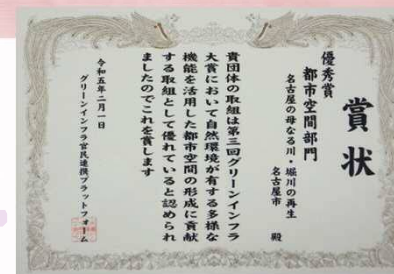 賞状
優秀賞
都市空間部門
名古屋の母なる川・堀川の再生
名古屋市　殿
貴団体の取組は第三回グリーンインフラ
大賞において自然環境が有する多様な
機能を活用した都市空間の形成に貢献
する取組として優れていると認められ
ましたのでこれを賞します
令和五年二月一日
グリーンインフラ官民連携プラットフォーム